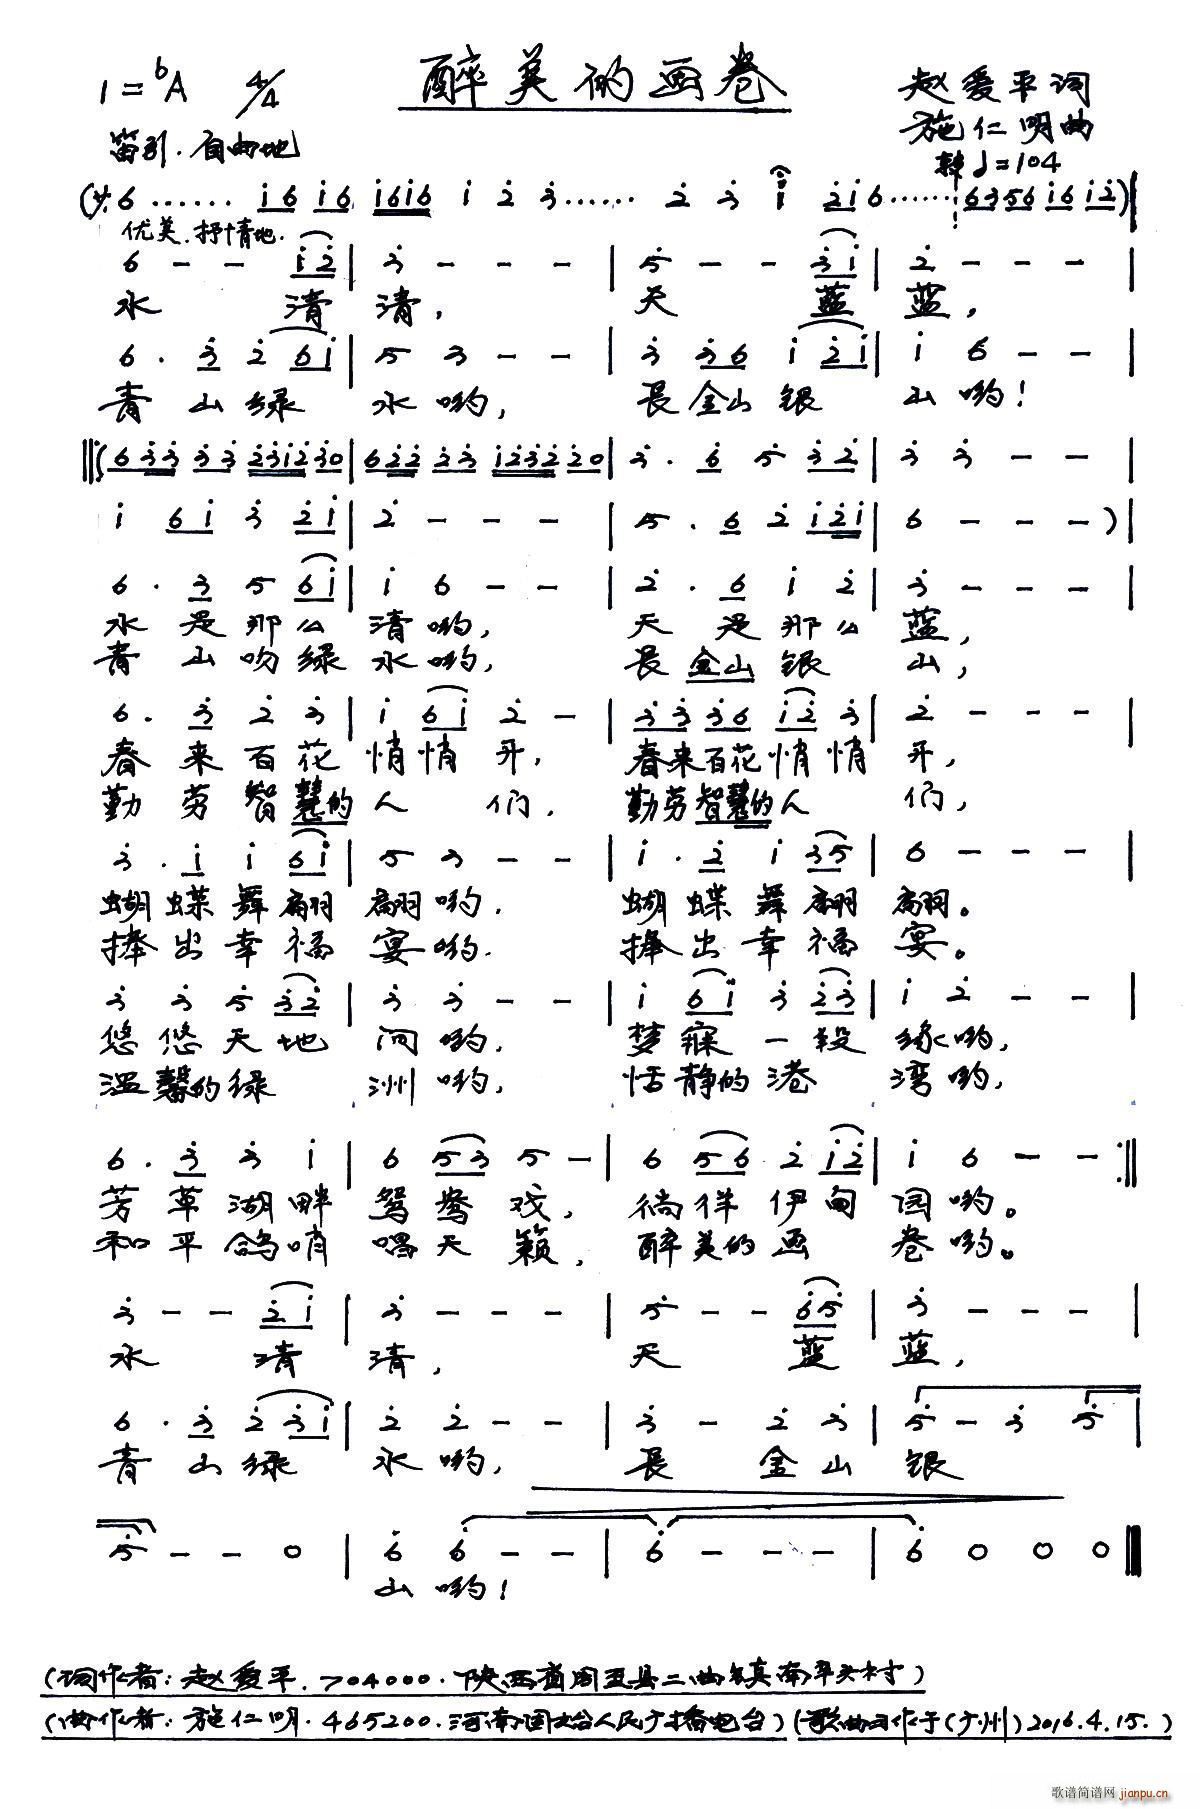 醉美的画卷
1=♭A 4/4
赵爱平词
施仁明曲
笛引.自由地
♩=104
(サ6······i6 i6 i6i6 i 2 3······ 2 3 i 2i6······6356 i6 i2)
优美.抒情地.
6 - - i2 | 3 - - - | 5 - - 3i | 2 - - - |
水 清 清, 天 蓝 蓝,
6 . 3 2 6i | 5 3 - - | 3 36 i 2i | i 6 - - |
青山绿 水哟, 是金山银 山哟!
6 33 33 2312 30 | 6 22 23 1232 20 | 3 . 6 5 32 | 3 3 - - |
i 6i 3 2i | 2 - - - | 5 . 6 2 i2i | 6 - - - ) |
6 . 3 5 6i | i 6 - - | 2 . 6 i 2 | 3 - - - |
水是那么 清哟, 天是那么 蓝,
青山吻绿 水哟, 是金山银 山,
6 . 3 2 3 | i 6i 2 - | 33 36 i2 3 | 2 - - - |
春来百花 悄悄开, 春来百花悄悄 开,
勤劳智慧的 人们, 勤劳智慧的人 们,
3 . i i 6i | 5 3 - - | i . 2 i 35 | 6 - - - |
蝴蝶舞翩 翩哟. 蝴蝶舞翩 翩。
捧出幸福 宴哟. 捧出幸福 宴。
3 3 5 32 | 3 3 - - | i 6i 3 23 | i 2 - - |
悠悠天地 间哟, 梦寐一段 缘哟,
温馨的绿 洲哟, 恬静的港 湾哟,
6 . 3 3 i | 6 53 5 - | 6 56 2 i2 | i 6 - - :||
芳草湖畔 鸳鸯戏, 徜徉伊甸 园哟。
和平鸽哨 唱天籁, 醉美的画 卷哟。
3 - - 2i | 3 - - - | 5 - - 65 | 3 - - - |
水 清 清, 天 蓝 蓝,
6 . 3 2 3i | 2 2 - - | 3 - 2 3 | 5 - 3 5 |
青山绿 水哟, 是 金山 银
5 - - 0 | 6 6 - - | 6 - - - | 6 0 0 0 ||
山哟!
(词作者:赵爱平.704000.陕西省周至县二曲镇南平头村)
(曲作者:施仁明.465200.河南固始人民广播电台)(歌曲习作于(广州)2016.4.15.)
歌谱简谱网
jianpu.cn